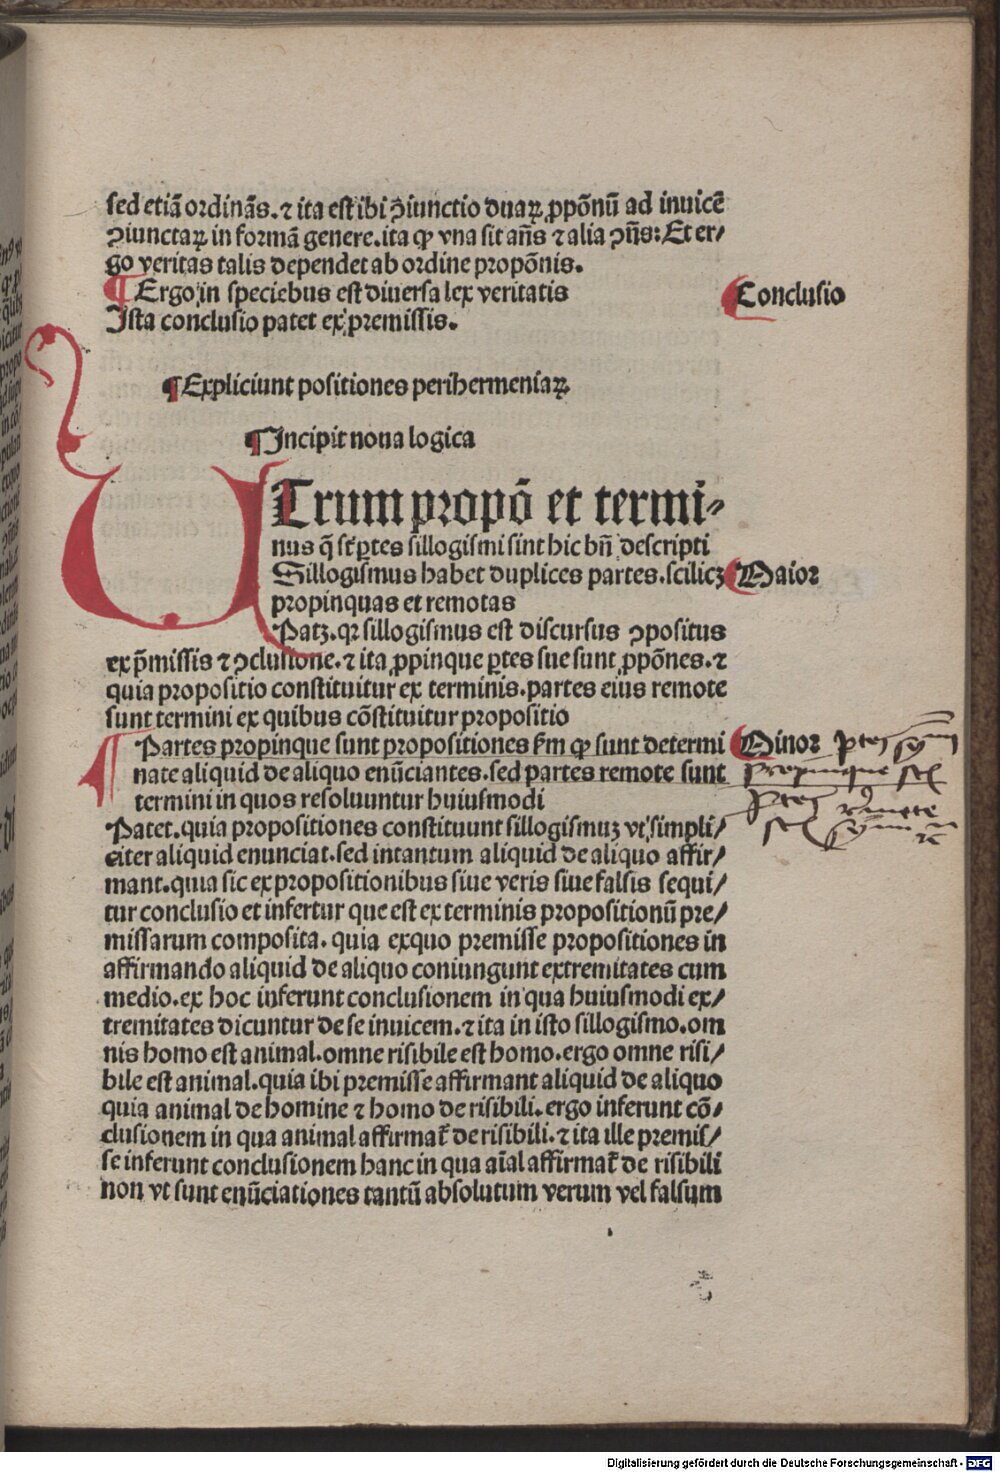 sed etiā ordinās. ⁊ ita est ibi ꝯiunctio duaꝝ ꝓpōnū ad inuicē
ꝯiunctaꝝ in formā genere. ita ꝙ vna sit an̄s ⁊ alia ꝯn̄s: Et er/
go veritas talis dependet ab ordine propōnis.
¶ Ergo in speciebus est diuersa lex veritatis
Conclusio
Ista conclusio patet ex premissis.
¶ Expliciunt positiones perihermeniaꝝ
¶ Incipit noua logica
UTrum propō et termi-
nus q̄ sūt ꝑtes sillogismi sint hic bn̄ descripti
Sillogismus habet duplices partes. scilicꝫ
Maior
propinquas et remotas
Patꝫ. qꝛ sillogismus est discursus ꝯpositus
ex p̄missis ⁊ ꝯclusione. ⁊ ita ꝓpinque ꝑtes sue sunt ꝓpōnes. ⁊
quia propositio constituitur ex terminis. partes eius remote
sunt termini ex quibus cōstituitur propositio
¶ Partes propinque sunt propositiones ẜm ꝙ sunt determi
Minor
nate aliquid de aliquo enūciantes. sed partes remote sunt
propinque
termini in quos resoluuntur huiusmodi
remote
Patet. quia propositiones constituunt sillogismuꝫ vt simpli/
citer aliquid enunciat. sed intantum aliquid de aliquo affir/
mant. quia sic ex propositionibus siue veris siue falsis sequi/
tur conclusio et infertur que est ex terminis propositionū pre/
missarum composita. quia exquo premisse propositiones in
affirmando aliquid de aliquo coniungunt extremitates cum
medio. ex hoc inferunt conclusionem in qua huiusmodi ex/
tremitates dicuntur de se inuicem. ⁊ ita in isto sillogismo. om
nis homo est animal. omne risibile est homo. ergo omne risi/
bile est animal. quia ibi premisse affirmant aliquid de aliquo
quia animal de homine ⁊ homo de risibili. ergo inferunt cō/
clusionem in qua animal affirmat̄ de risibili. ⁊ ita ille premis/
se inferunt conclusionem hanc in qua aīal affirmat̄ de risibili
non vt sunt enūciationes tantū absolutum verum vel falsum
Digitalisierung gefördert durch die Deutsche Forschungsgemeinschaft - DFG